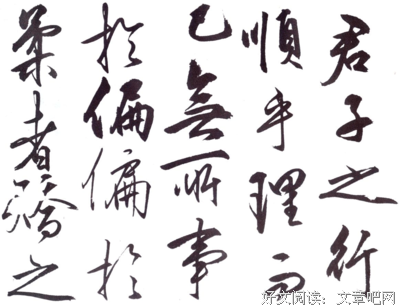 君子之行
順乎理而
已無所事
於偏偏於
柔者矯之
好文阅读：文章吧网